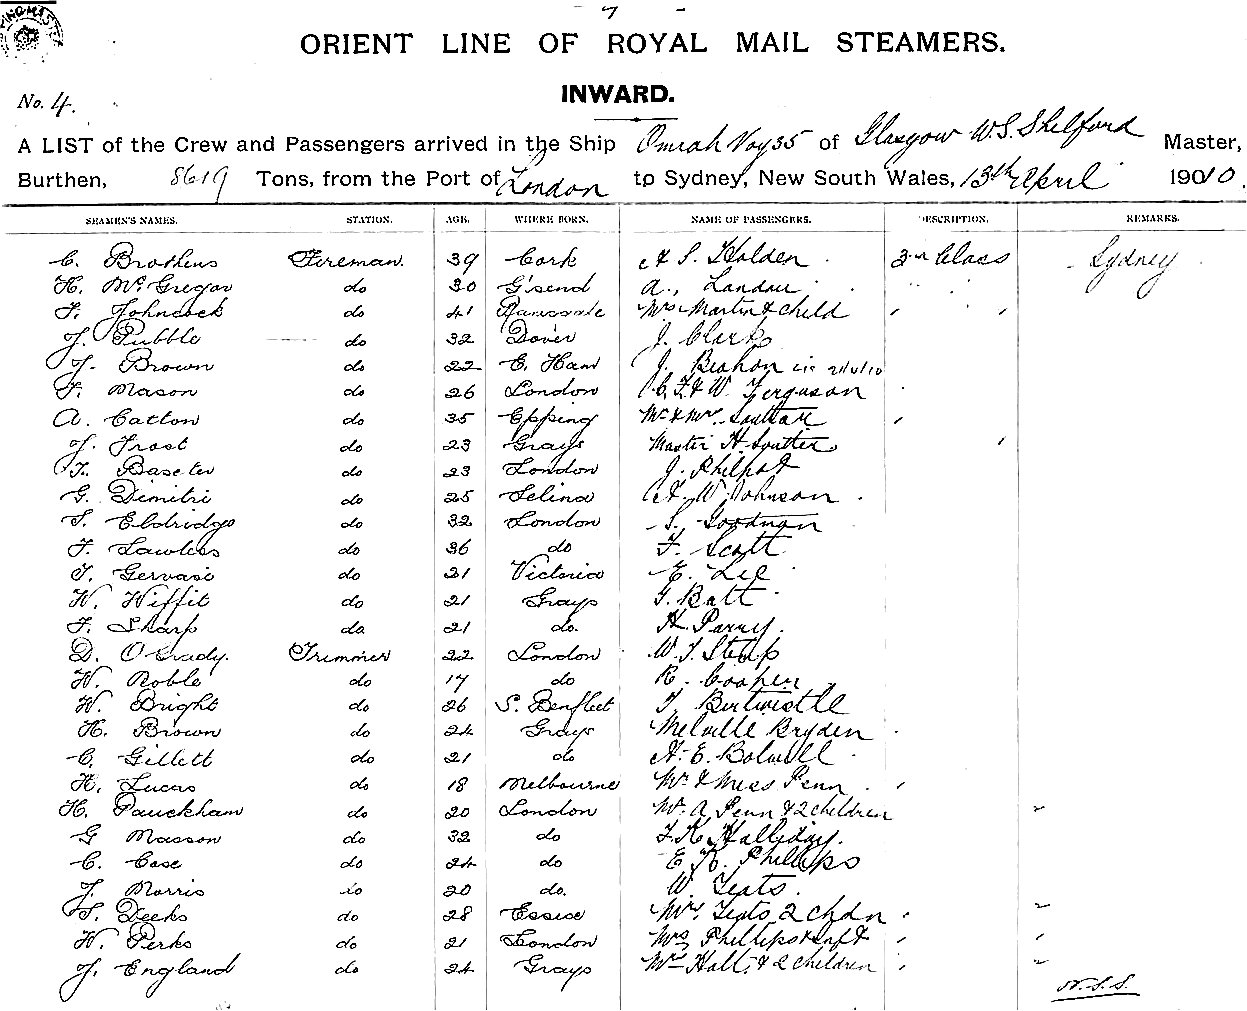 7
ORIENT LINE OF ROYAL MAIL STEAMERS.
INWARD.
No. 4.
A LIST of the Crew and Passengers arrived in the Ship Omrah Voy 35 of Glasgow W.S. Shelford Master,
Burthen, 8619 Tons, from the Port of London to Sydney, New South Wales, 13th April 1910.
SEAMEN'S NAMES. STATION. AGE. WHERE BORN. NAME OF PASSENGERS. DESCRIPTION. REMARKS.
C. Brothers Fireman. 39 Cork A S. Holden 3rd Class Sydney
H. McGregor do 30 G'send A. Landau
F. Johncock do 41 Mrs Martin & child
J. Pubble do 32 Dover J. Clark
J. Brown do 22 E. Ham J.
F. Mason do 26 London C. F. & W. Ferguson
A. Catton do 35 Epping Mr & Mrs
J. Frost do 23 Grays Master H. Soutter
F. do 23 London J. Philpot
G. Dimitri do 25 Selina A. W. Johnson
S. Eldridge do 32 London S. Goodman
F. Lawless do 36 do F. Scott
T. Gervasi do 21 Victoria E. Lee
W. Wiffit do 21 Grays G. Batt
F. Sharp do 21 do. H. Parry.
D. O'Grady. Trimmer 22 London W. J.
W. Noble do 17 do R. Cooper
W. Bright do 26 S. Benfleet T. Birtwistle
H. Brown do 24 Grays Melville Bryden
C. Gillett do 21 do H. E. Bolwell
H. Lucas do 18 Melbourne Mr & Miss Penn
H. Pauckham do 20 London Mr. A. Penn & 2 children
G Masson do 32 do F. K. Halliday.
C. Case do 24 do E R. Phillips
J. Morris do 20 do. W. Teats.
S. Deeks do 28 Essex Mrs. Teats 2 chdn
W. Perks do 21 London Mrs Phillips & inft
J. England do 24 Grays Mrs Hall, & 2 children
W.S.S.